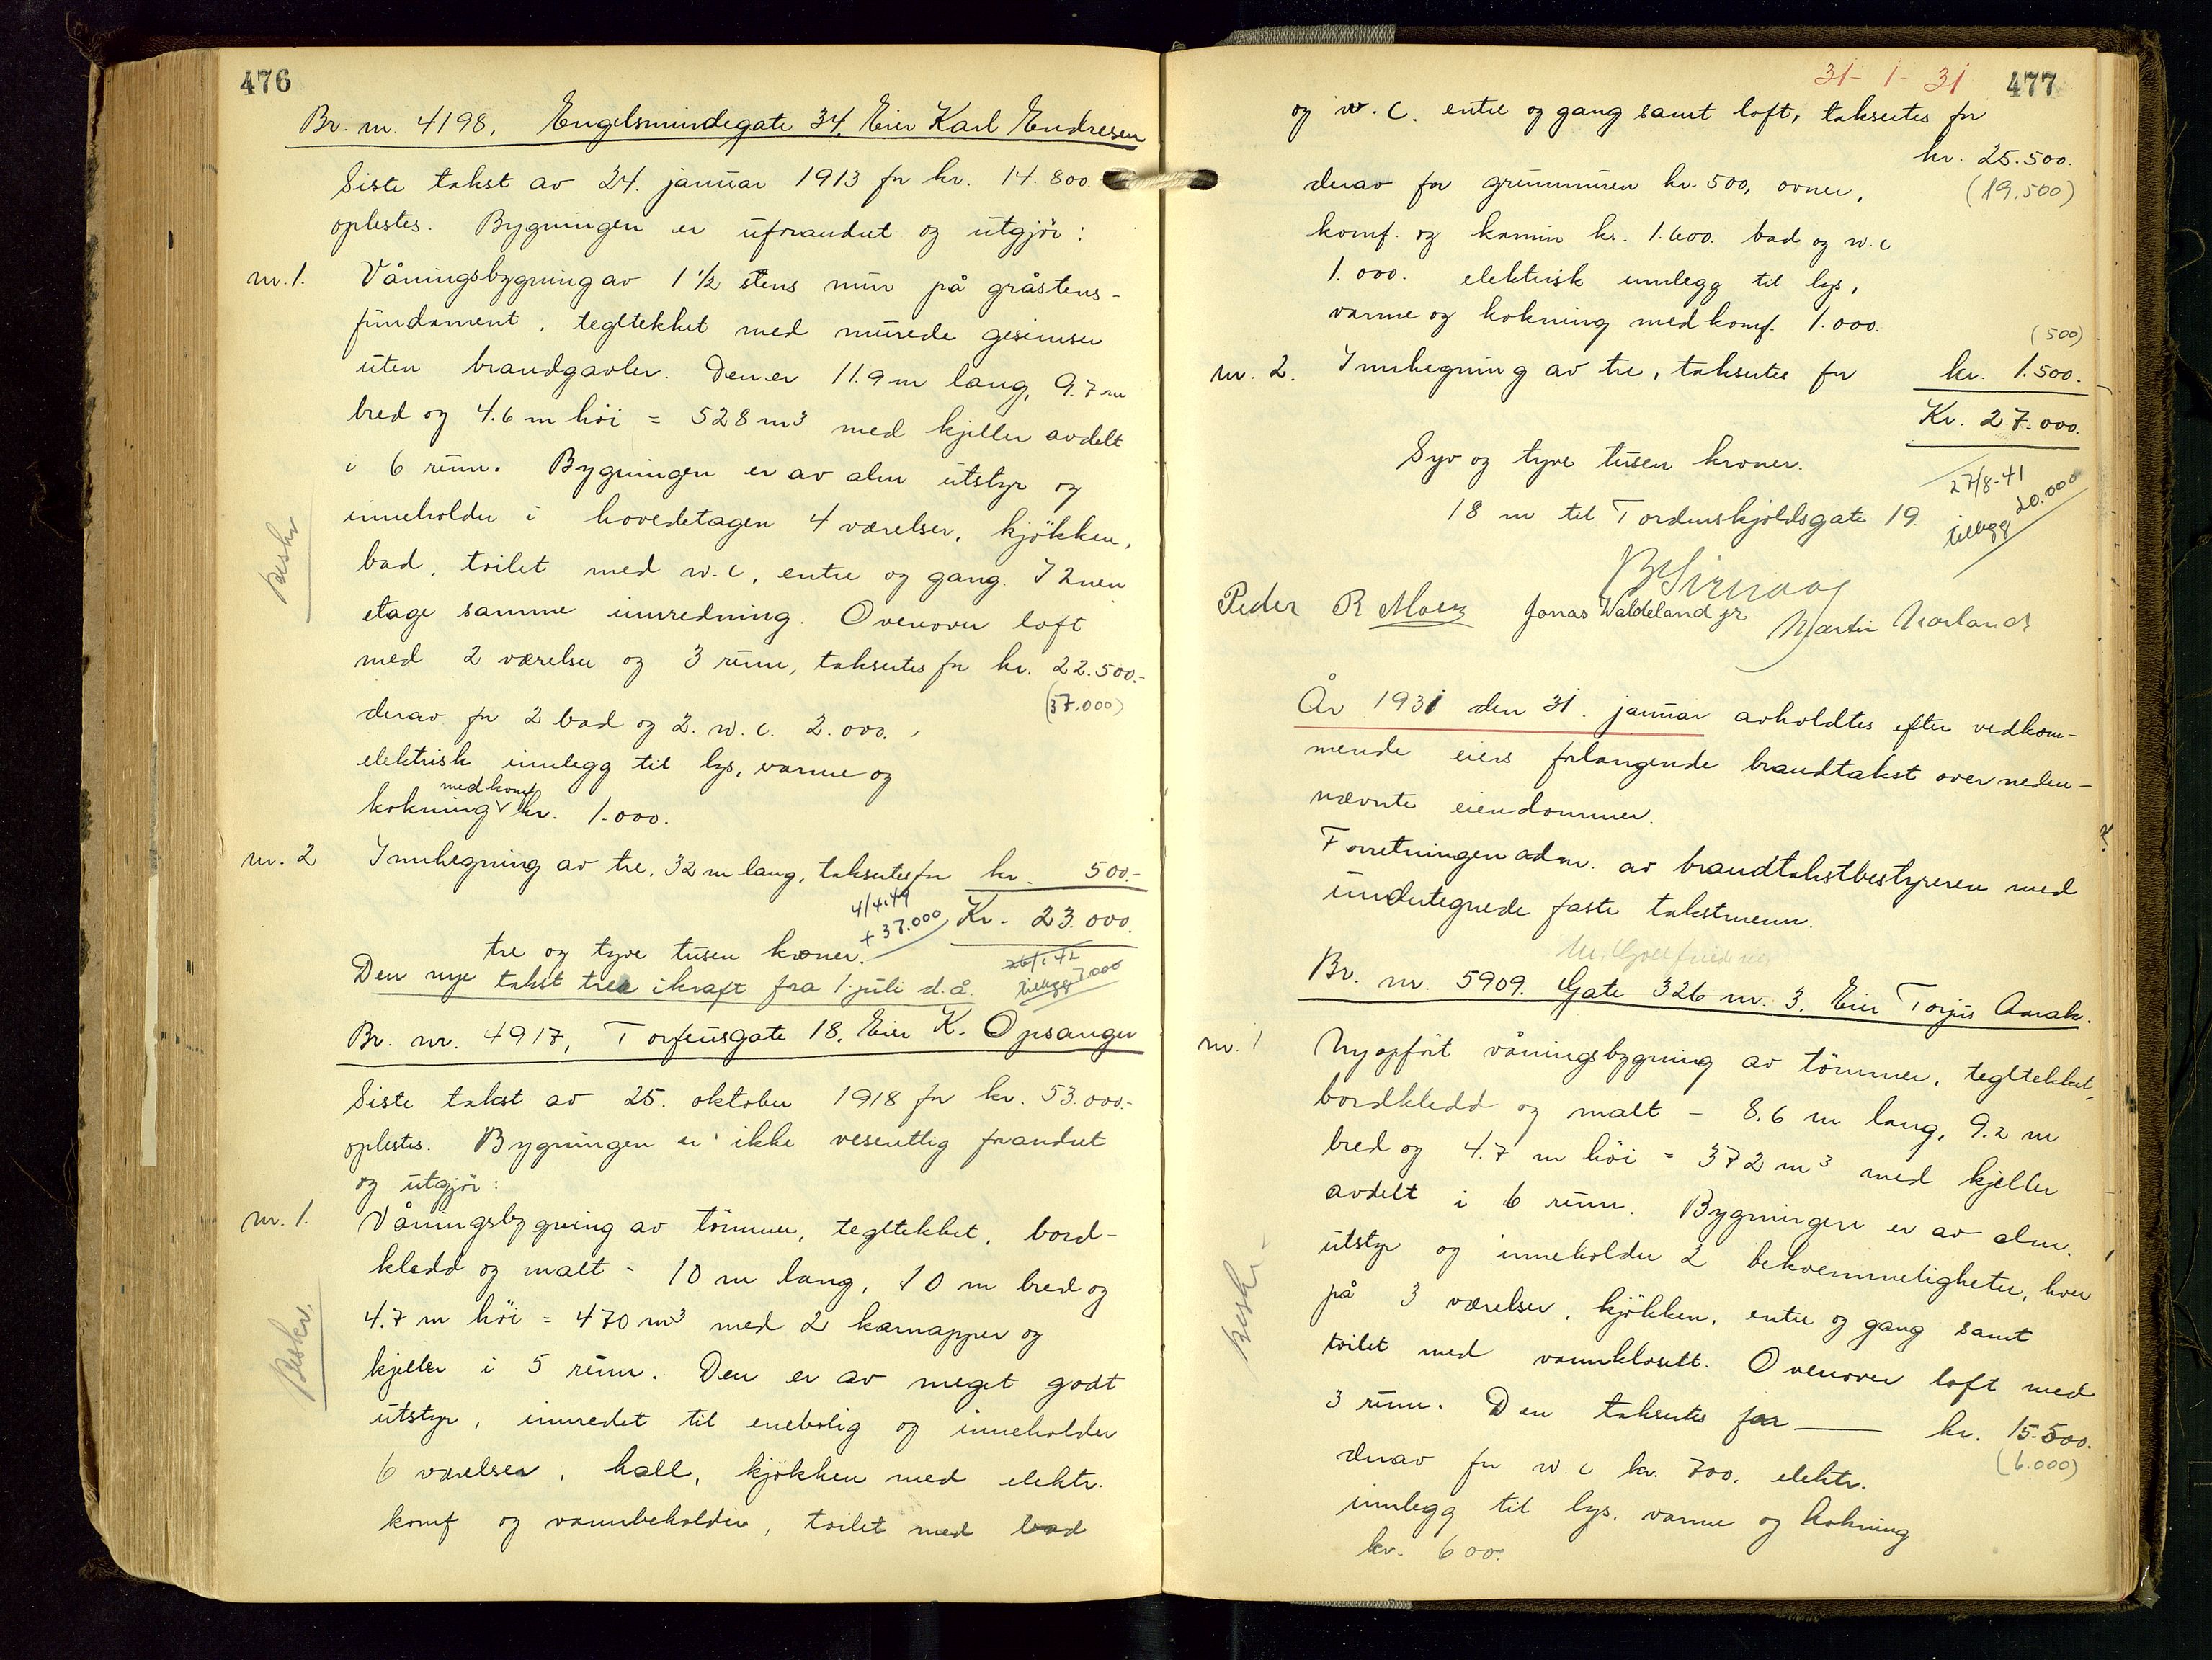 476
Br. nr. 4198, Engelsmindegate 34. Eier Karl Endresen
Siste takst av 24. januar 1913 for kr. 14.800.
oplestes. Bygningen er uforandret og utgjör:
nr. 1. Våningsbygning av 1 1/2 stens mur på gråstens-
fundament, tegltekket med murede gesimser
uten brandgavler. Den er 11.9 m lang, 9.7 m
bred og 4.6 m höi = 528 m³ med kjeller avdelt
i 6 rum. Bygningen er av alm utstyr og
inneholder i hovedetagen 4 værelser, kjökken,
Beskr
bad, toilet med w.c, entre og gang. I 2nen
etage samme innredning. Ovenover loft
med 2 værelser og 3 rum, takseres for kr. 22.500.-
(37.000)
derav for 2 bad og 2. w.c. 2.000.,
elektrisk innlegg til lys, varme og
kokning med komf. kr. 1.000.
nr. 2 Innhegning av tre, 32 m lang, taksertes for kr. 500.-
4/4.49
+ 37.000
Kr. 23.000.
tre og tyve tusen kroner.
26/1.42
tillegg 7.000
Den nye takst trer ikraft fra 1. juli d.å.
Br. nr. 4917, Torfæusgate 18. Eier K. Opsanger
Siste takst av 25. oktober 1918 for kr. 53.000.-
oplestes. Bygningen er ikke vesentlig forandret
og utgjör:
nr. 1. Våningsbygning av tömmer, tegltekket, bord-
kledd og malt - 10 m lang, 10 m bred og
4.7 m höi = 470 m³ med 2 karnapper og
Beskr.
kjeller i 5 rum. Den er av meget godt
utstyr, innredet til enebolig og inneholder
6 værelser, hall, kjökken med elektr.
komf og vannbeholder, toilet med bad
31-1-31 477
og w.c. entre og gang samt loft, taksertes for
kr. 25.500.
(19.500)
derav for grunnmuren kr. 500, ovner,
komf. og kamin kr. 1.600. bad og w.c
1.000. elektrisk innlegg til lys,
varme og kokning med komf. 1.000.
(500)
nr. 2. Innhegning av tre, taksertes for kr. 1.500.
Kr. 27.000.
Syv og tyve tusen kroner.
27/8-41
tillegg 20.000
18 m til Tordenskjoldsgate 19.
Peder R Moen Jonas Waldeland jr. Martin
År 1931 den 31. januar avholdtes efter vedkom-
mende eiers forlangende brandtakst over neden-
nævnte eiendommer.
Forretningen adm. av brandtakstbestyreren med
undertegnede faste takstmenn.
Br. nr. 5909. Gate 326 nr. 3. Eier Torjus Aarak.
nr. 1 Nyopfört våningsbygning av tömmer, tegltekket,
bordkledd og malt - 8.6 m lang, 9.2 m
bred og 4.7 m höi = 372 m³ med kjeller
avdelt i 6 rum. Bygningen er av alm.
utstyr og inneholder 2 bekvemmeligheter, hver
Beskr
på 3 værelser, kjökken, entre og gang samt
toilet med vannklosett. Ovenover loft med
3 rum. Den taksertes for kr. 15.500.
(6.000)
derav for w.c kr. 700. elektr.
innlegg til lys. varme og kokning
kr. 600.